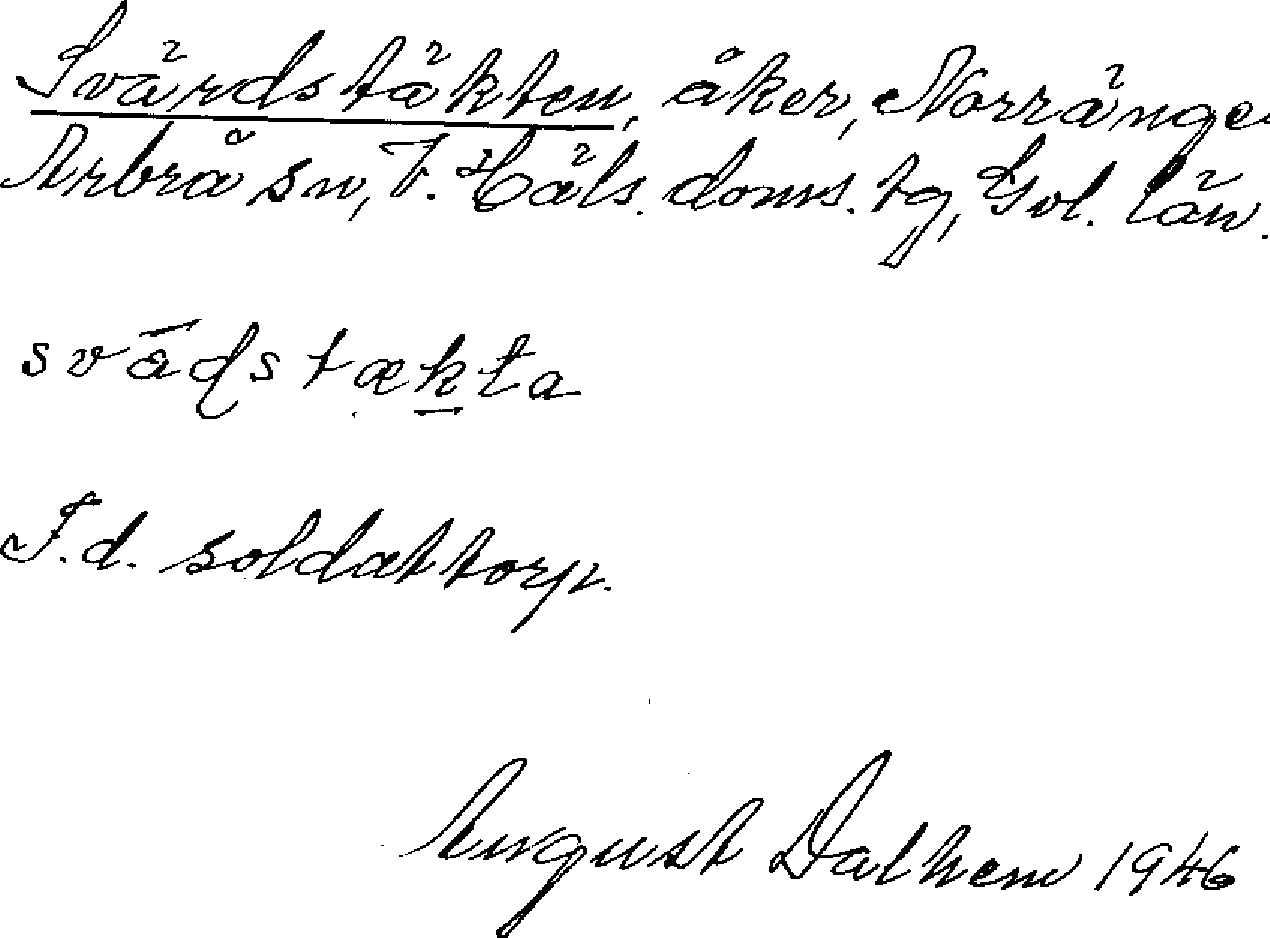 Svärdstäkten, åker, Norränge
Arbrå sn, V. Häls. doms. tg, Gvl. län.
svādstækta
F.d. soldattorp.
August Dalhem 1946